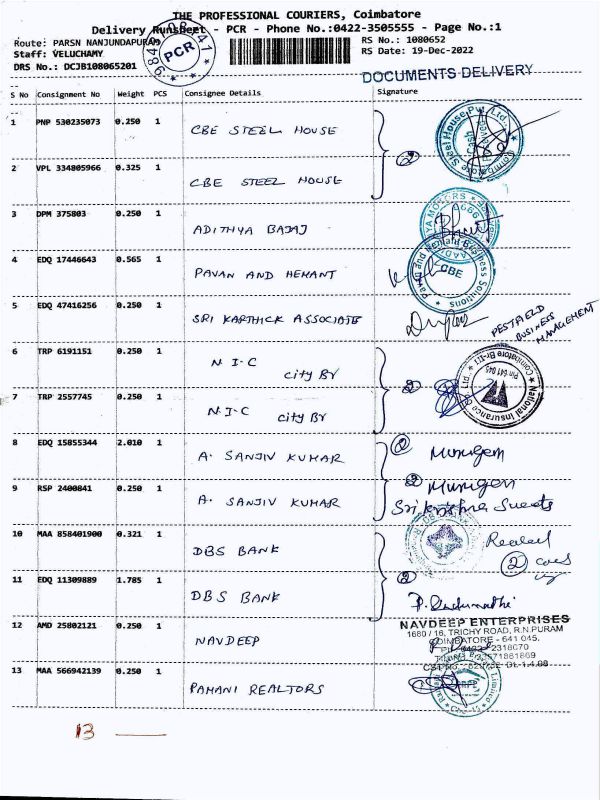 THE PROFESSIONAL COURIERS, Coimbatore
Delivery Runsheet - PCR - Phone No.:0422-3505555 - Page No.:1
Route: PARSN NANJUNDAPURAM
RS No.: 1080652
Staff: VELUCHAMY
RS Date: 19-Dec-2022
DRS No.: DCJB108065201
PCR
DOCUMENTS DELIVERY
S No Consignment No Weight PCS Consignee Details Signature
1 PNP 530235073 0.250 1 CBE STEEL HOUSE
2 VPL 334805966 0.325 1 CBE STEEL HOUSE
2
3 DPM 375803 0.250 1 ADITHYA BAJAJ
4 EDQ 17446643 0.565 1 PAVAN AND HEMANT
CBE
5 EDQ 47416256 0.250 1 SRI KARTHICK ASSOCIATE
PESTFIELD
BUSINESS
MANAGEMENT
6 TRP 6191151 0.250 1 N-I-C
city Br
2
7 TRP 2557745 0.250 1 N-I-C
city Br
8 EDQ 15855344 2.010 1 A. SANJIV KUMAR
2 Murugan
9 RSP 2400841 0.250 1 A. SANJIV KUMAR
2 Murugan
Sri krishna Sweets
10 MAA 858401900 0.321 1 DBS BANK
2
11 EDQ 11309889 1.785 1 DBS BANK
2
12 AMD 25802121 0.250 1 NAVDEEP
NAVDEEP ENTERPRISES
1680 / 16, TRICHY ROAD, R.N.PURAM
COIMBATORE - 641 045.
13 MAA 566942139 0.250 1 PAMANI REALTORS
13